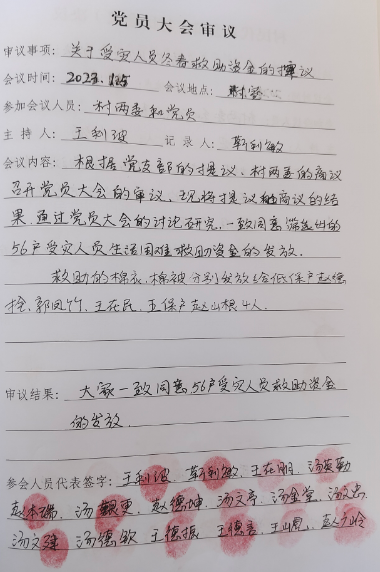 党员大会审议
审议事项: 关于受灾人员冬春救助资金的审议
会议时间: 2023.1.25 会议地点: 村室
参加会议人员: 村两委和党员
主持人: 王利波 记录人: 靳利敏
会议内容: 根据党支部的提议、村两委的商议
召开党员大会的审议、现将提议和商议的结
果,通过党员大会的讨论研究,一致同意筛选出的
56户受灾人员生活困难救助资金的发放.
救助的棉衣、棉被分别发放给低保户赵德
拴、郭凤竹、王在民、五保户赵山根4人.
审议结果: 大家一致同意56户受灾人员救助资金
的发放.
参会人员代表签字: 王利波、靳利敏、王在明、汤英勤
赵本瑞、汤 更、赵德坤、汤文亭、汤金堂、汤文忠
汤文建 汤德敏 王德振 王德喜、王山虎、赵 岭